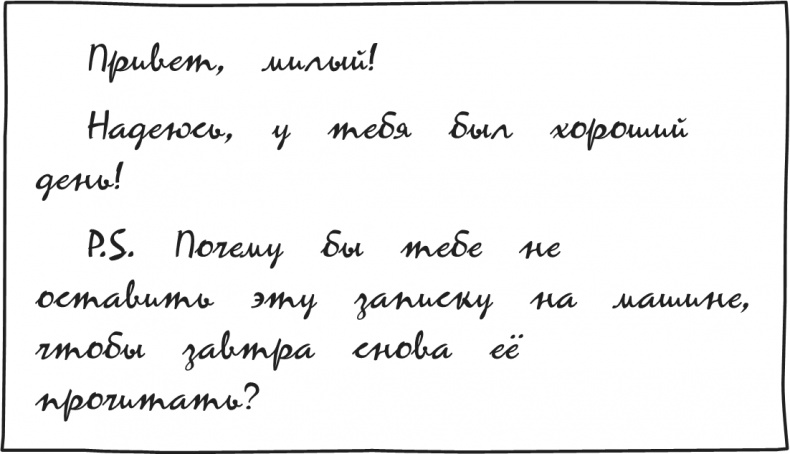 Привет, милый!
Надеюсь, у тебя был хороший
день!
P.S. Почему бы тебе не
оставить эту записку на машине,
чтобы завтра снова её
прочитать?